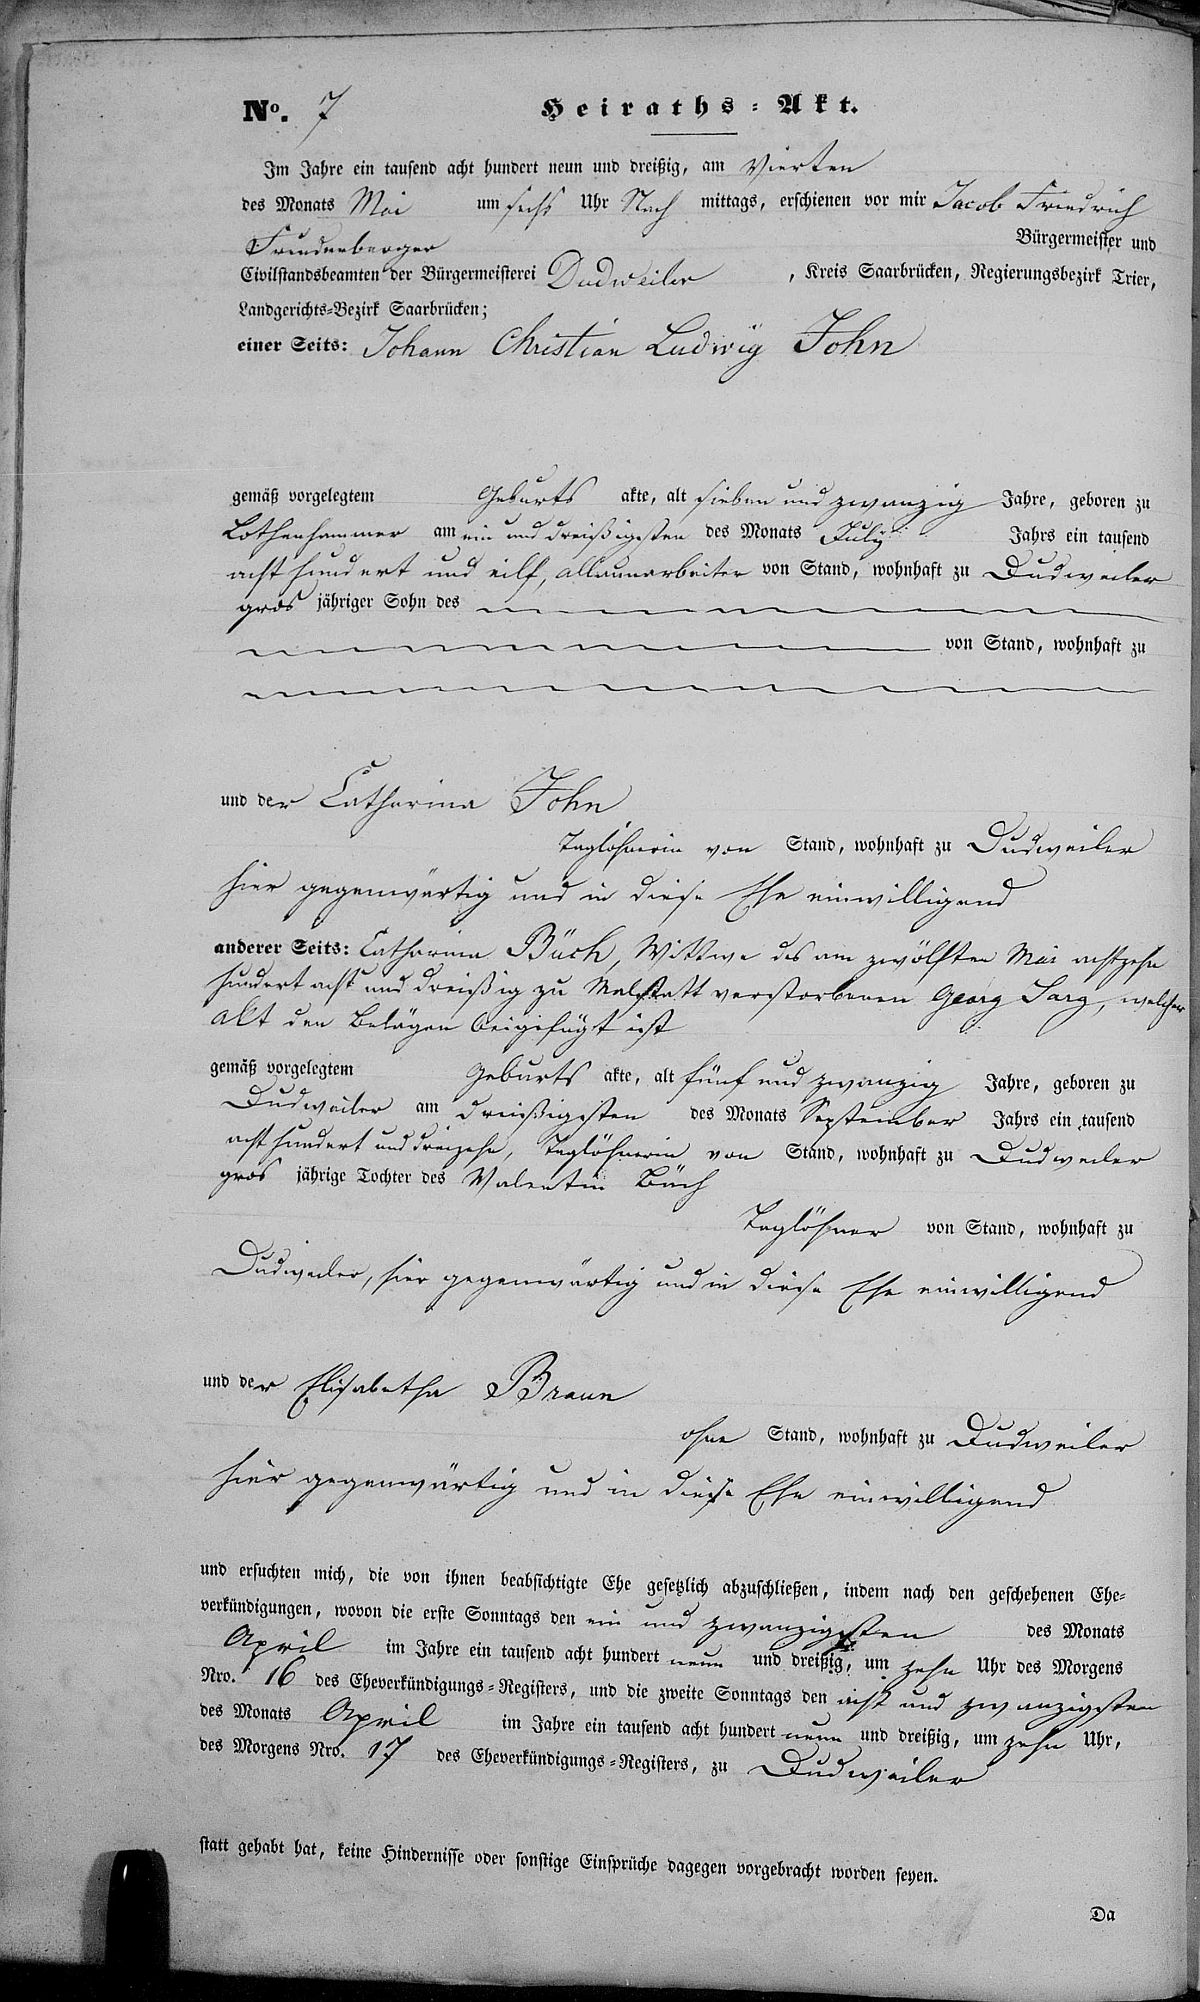 No. 7 Heiraths-Akt.
Im Jahre ein tausend acht hundert neun und dreißig, am Vierten
des Monats Mai um sechs Uhr Nach mittags, erschienen vor mir Jacob Friedrich
Freudenberger Bürgermeister und
Civilstandsbeamten der Bürgermeisterei Dudweiler, Kreis Saarbrücken, Regierungsbezirk Trier,
Landgerichts-Bezirk Saarbrücken;
einer Seits: Johann Christian Ludwig John
gemäß vorgelegtem Geburts akte, alt sieben und zwanzig Jahre, geboren zu
Lothenhammer am ein und dreißigsten des Monats July Jahrs ein tausend
acht hundert und eilf, Allaunarbeiter von Stand, wohnhaft zu Dudweiler
gros jähriger Sohn des
von Stand, wohnhaft zu
und der Catharina John
Taglöhnerin von Stand, wohnhaft zu Dudweiler
hier gegenwärtig und in diese Ehe einwilligend
anderer Seits: Catharina Büch, Wittwe des am zwölften Mai achtzehn
hundert acht und dreißig zu Malstatt verstorbenen Georg Sarg, welcher
Akt den Belägen beigefügt ist
gemäß vorgelegtem Geburts akte, alt fünf und zwanzig Jahre, geboren zu
Dudweiler am dreißigsten des Monats September Jahrs ein tausend
acht hundert und dreizehn, Taglöhnerin von Stand, wohnhaft zu Dudweiler
gros jährige Tochter des Valentin Büch
Taglöhner von Stand, wohnhaft zu
Dudweiler, hier gegenwärtig und in diese Ehe einwilligend
und der Elisabetha Braun
ohne Stand, wohnhaft zu Dudweiler
hier gegenwärtig und in diese Ehe einwilligend
und ersuchten mich, die von ihnen beabsichtigte Ehe gesetzlich abzuschließen, indem nach den geschehenen Ehe-
verkündigungen, wovon die erste Sonntags den ein und zwanzigsten des Monats
April im Jahre ein tausend acht hundert neun und dreißig, um zehn Uhr des Morgens
Nro. 16 des Eheverkündigungs-Registers, und die zweite Sonntags den acht und zwanzigsten
des Monats April im Jahre ein tausend acht hundert neun und dreißig, um zehn Uhr,
des Morgens Nro. 17 des Eheverkündigungs-Registers, zu Dudweiler
statt gehabt hat, keine Hindernisse oder sonstige Einsprüche dagegen vorgebracht worden seyen.
Da